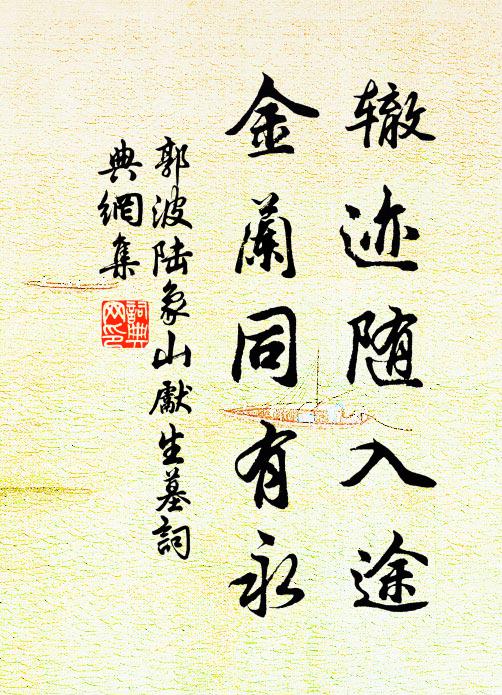 辙迹随入途
金蘭同有永
郭波陆象山獻生墓詞
典網集
詞典
网印